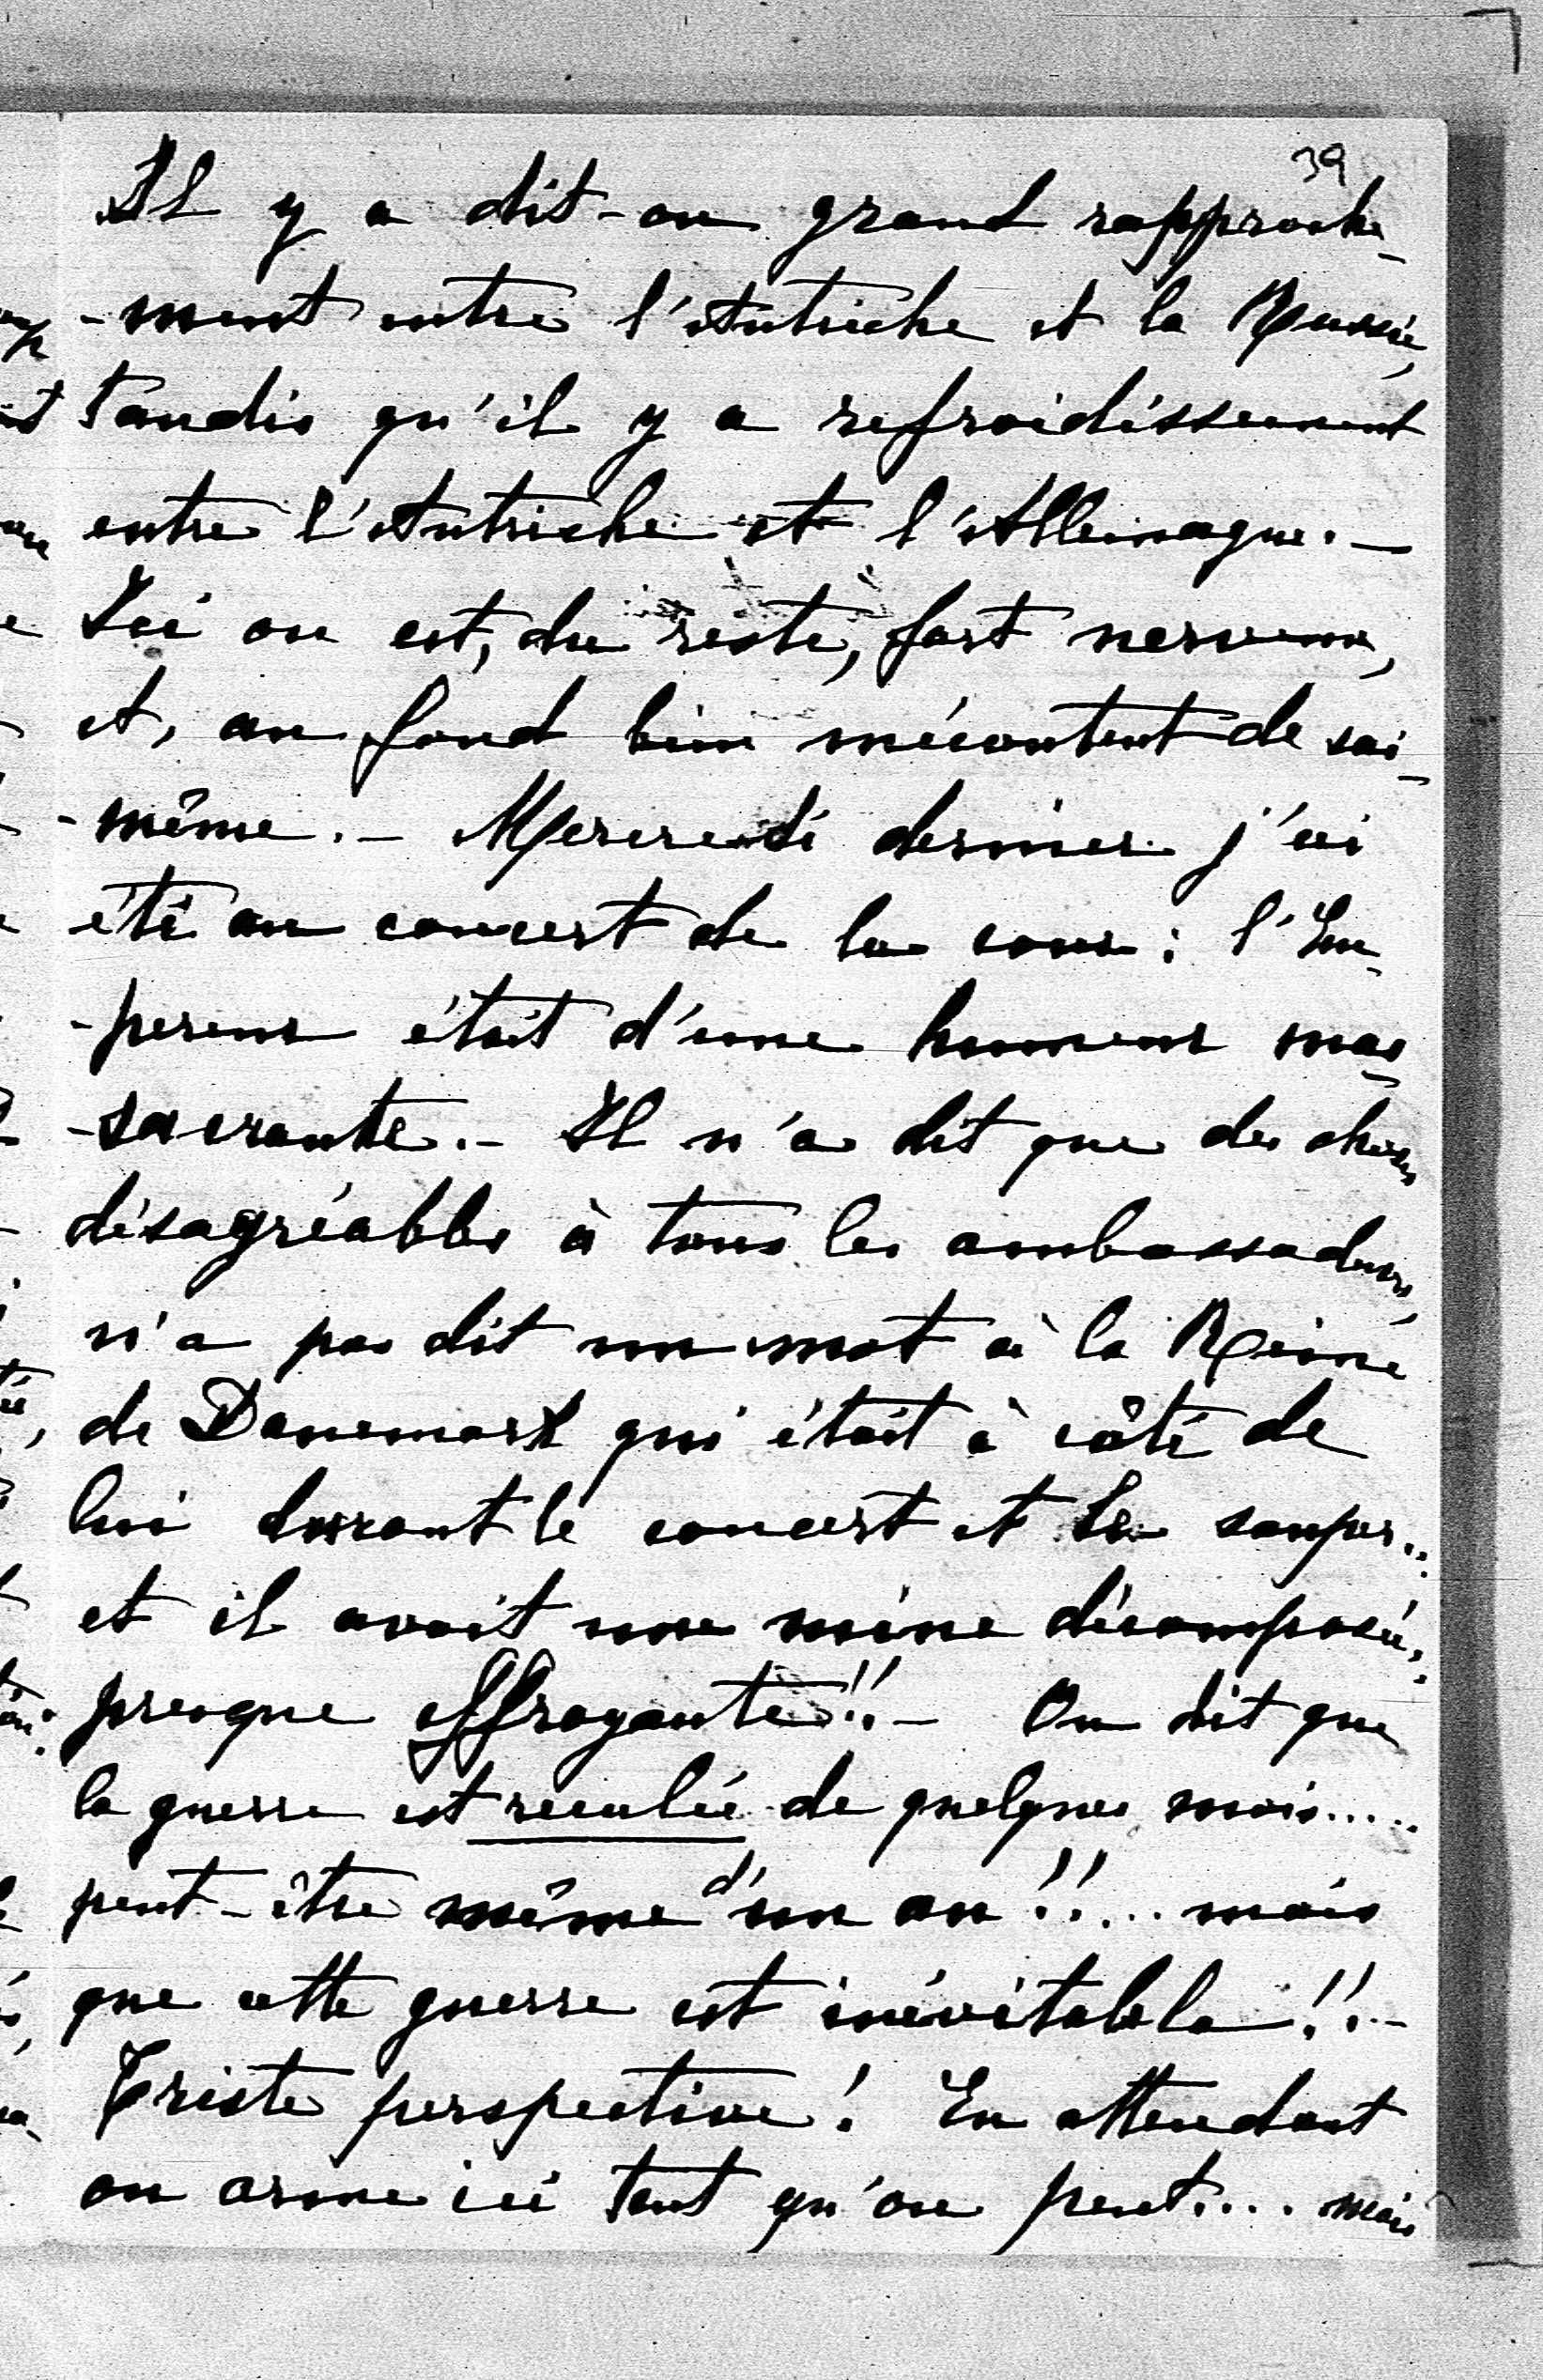 39
Il y a dit-on grand rapproche-
-ment entre l'Autriche et la Russie,
tandis qu'il y a refroidissement
entre l'Autriche et l'Allemagne. —
Ici on est, du reste, fort nerveux,
et, au fond bien mécontent de soi-
-même. — Mercredi dernier j'ai
été au concert de la cour : l'Em-
-pereur était d'une humeur mas-
-sacrante. — Il n'a dit que des choses
désagréables à tous les ambassadeurs,
n'a pas dit un mot à la Reine
de Danemark qui était à côté de
lui durant le concert et le souper..
et il avait une mine décomposée,
presque effrayante!! — On dit que
la guerre est reculée de quelques mois.....
peut-être même d'un an!!... mais
que cette guerre est inévitable!! —
Triste perspective! En attendant
on arme ici tant qu'on peut.... mais